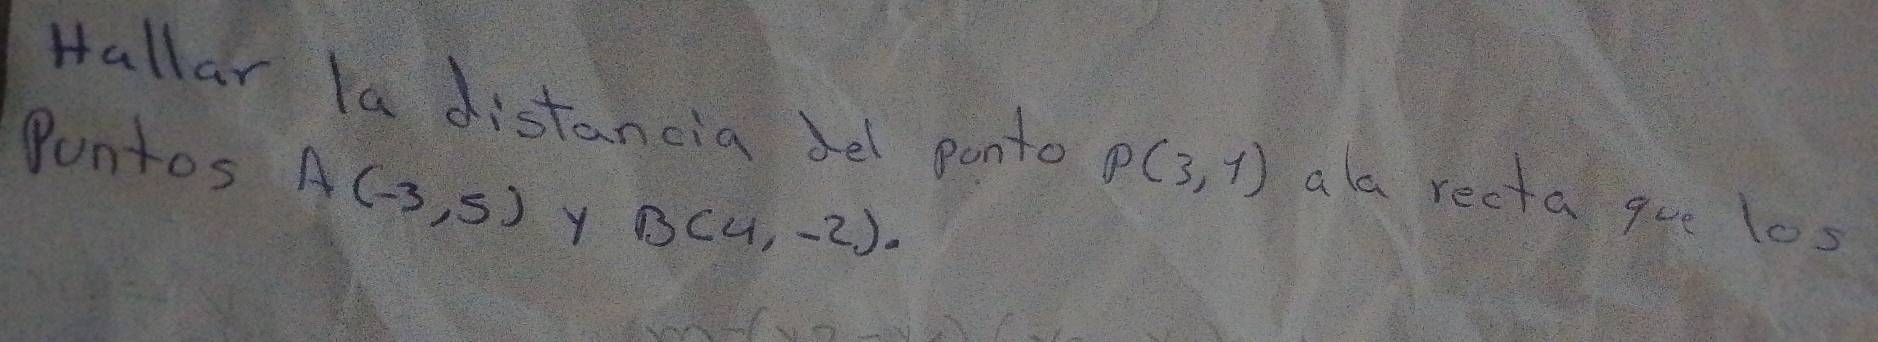 Hallar la distancia del punto P(3,1) a la recta que los
Puntos A(-3,5) y B(4,-2).